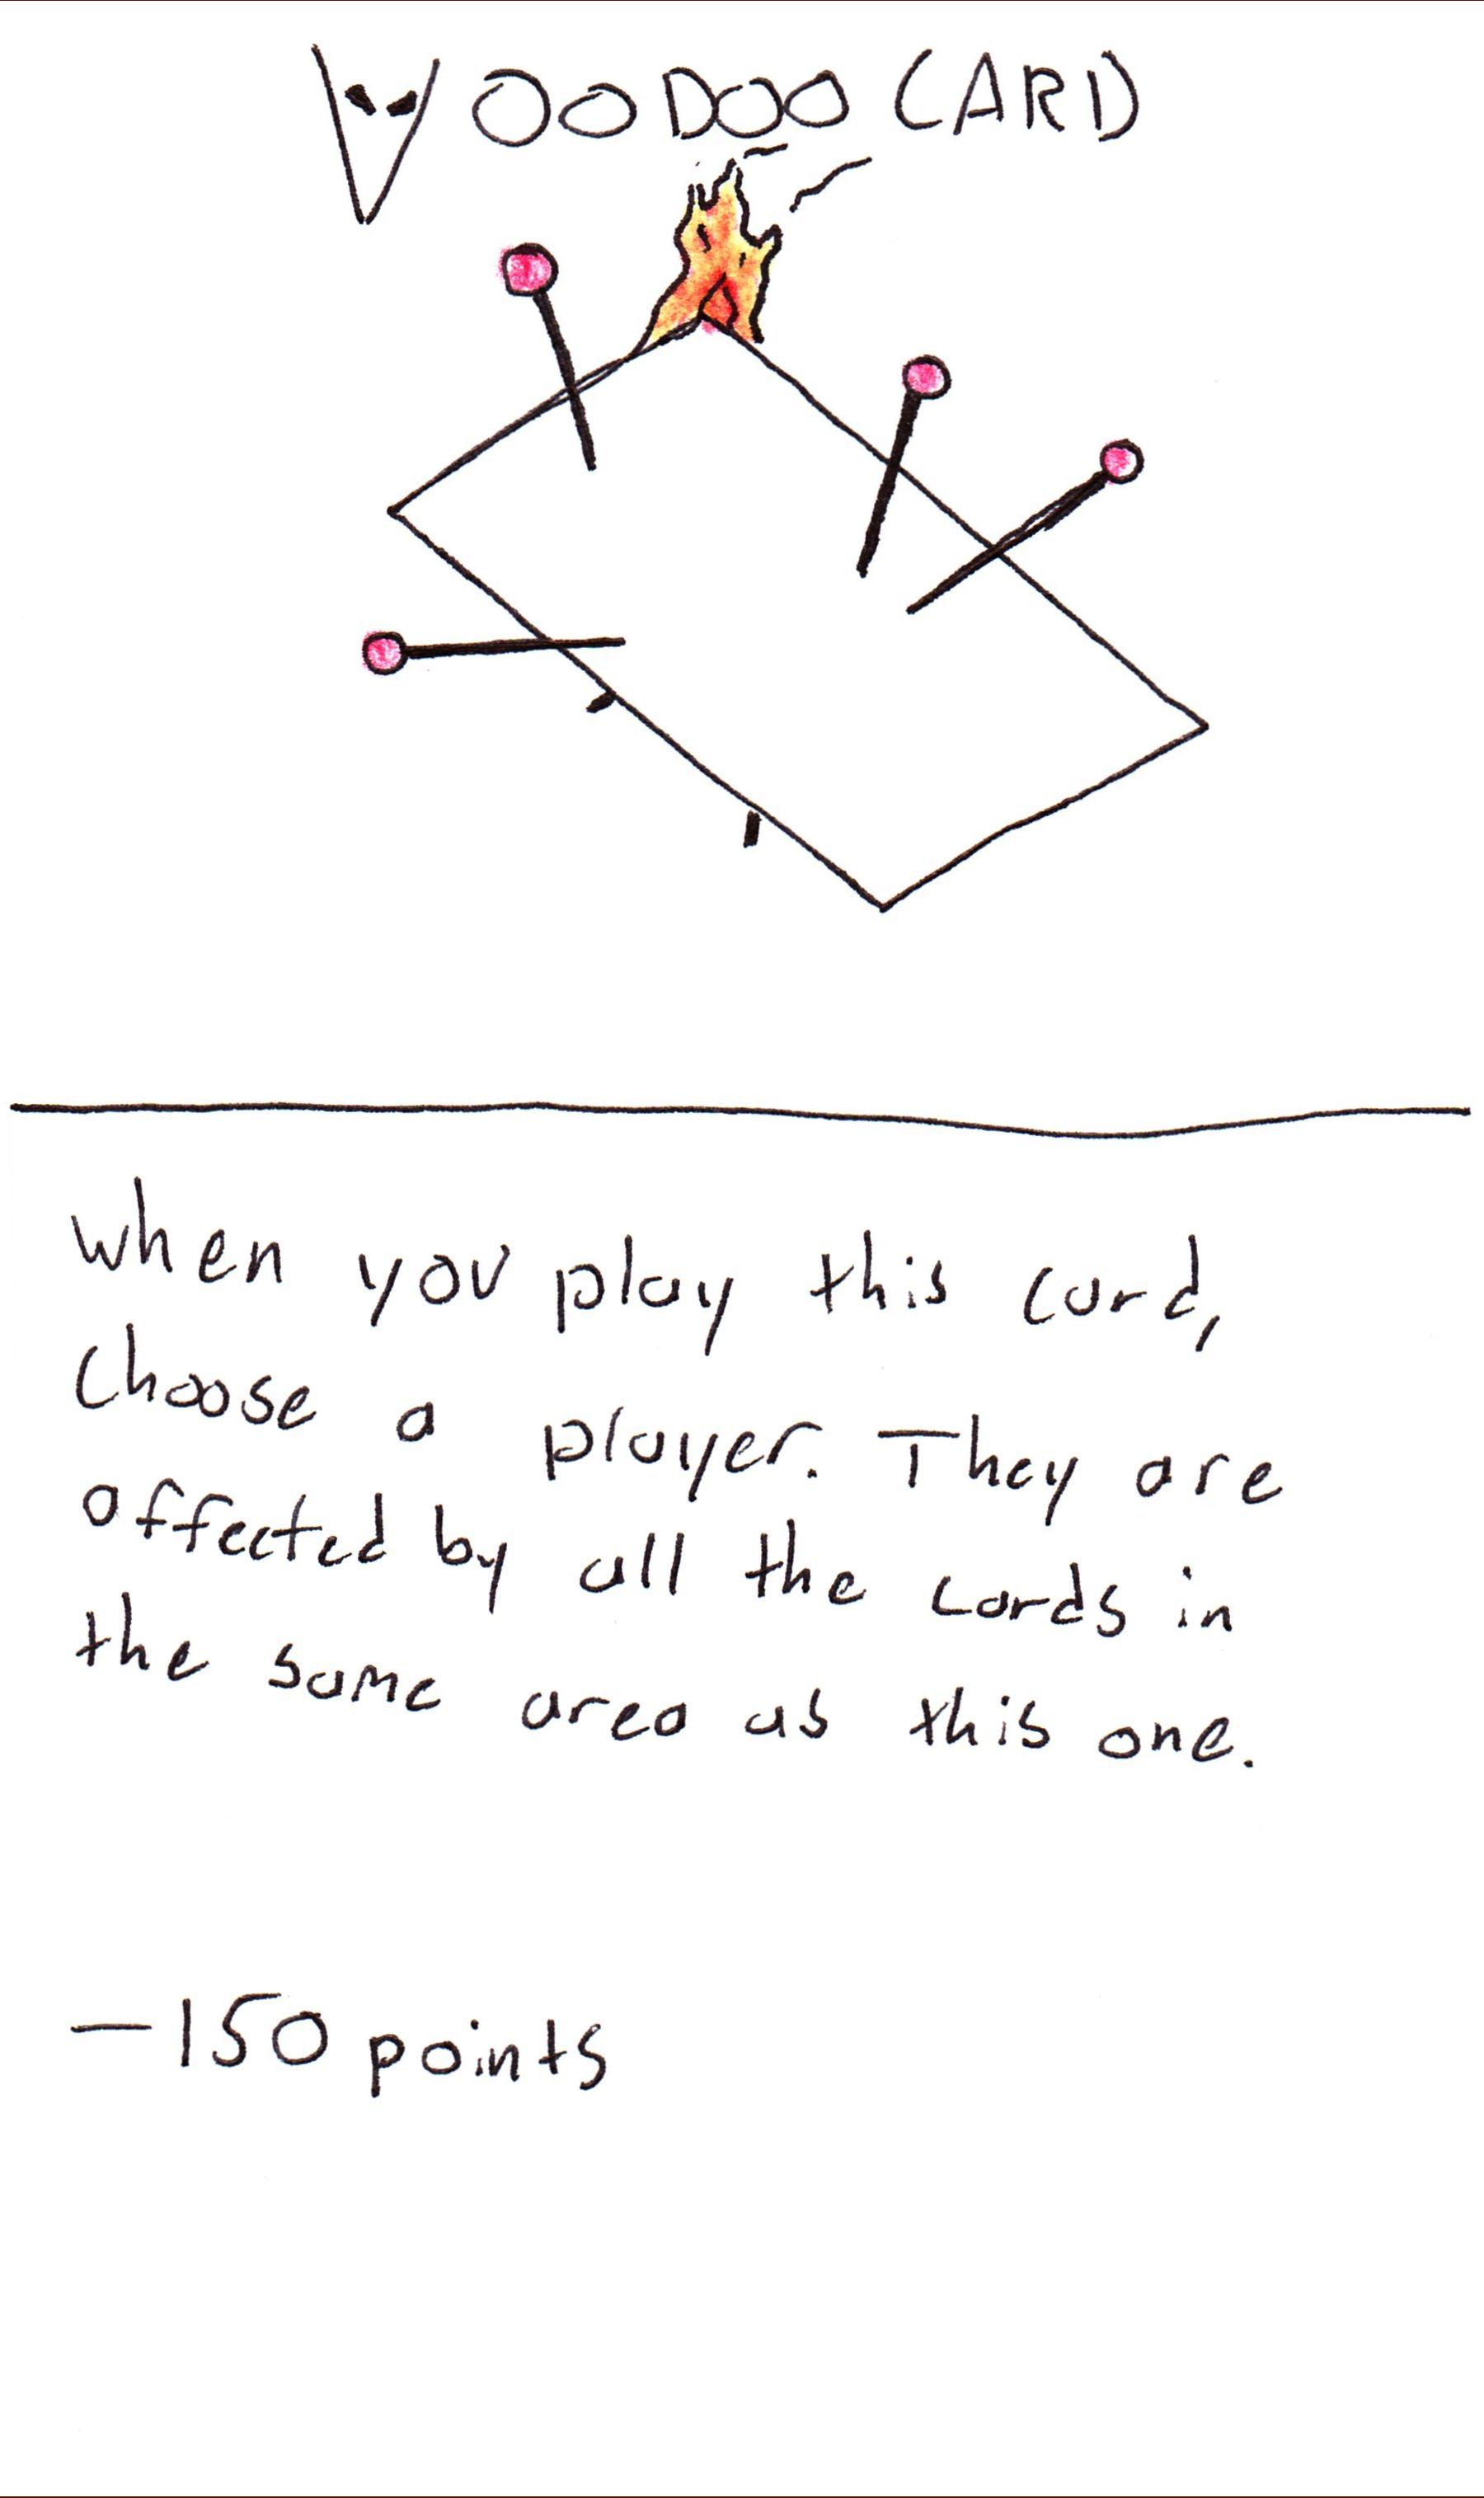 VOODOO CARD
when you play this card,
Choose a player. They are
affected by all the cards in
the same area as this one.
-150 points